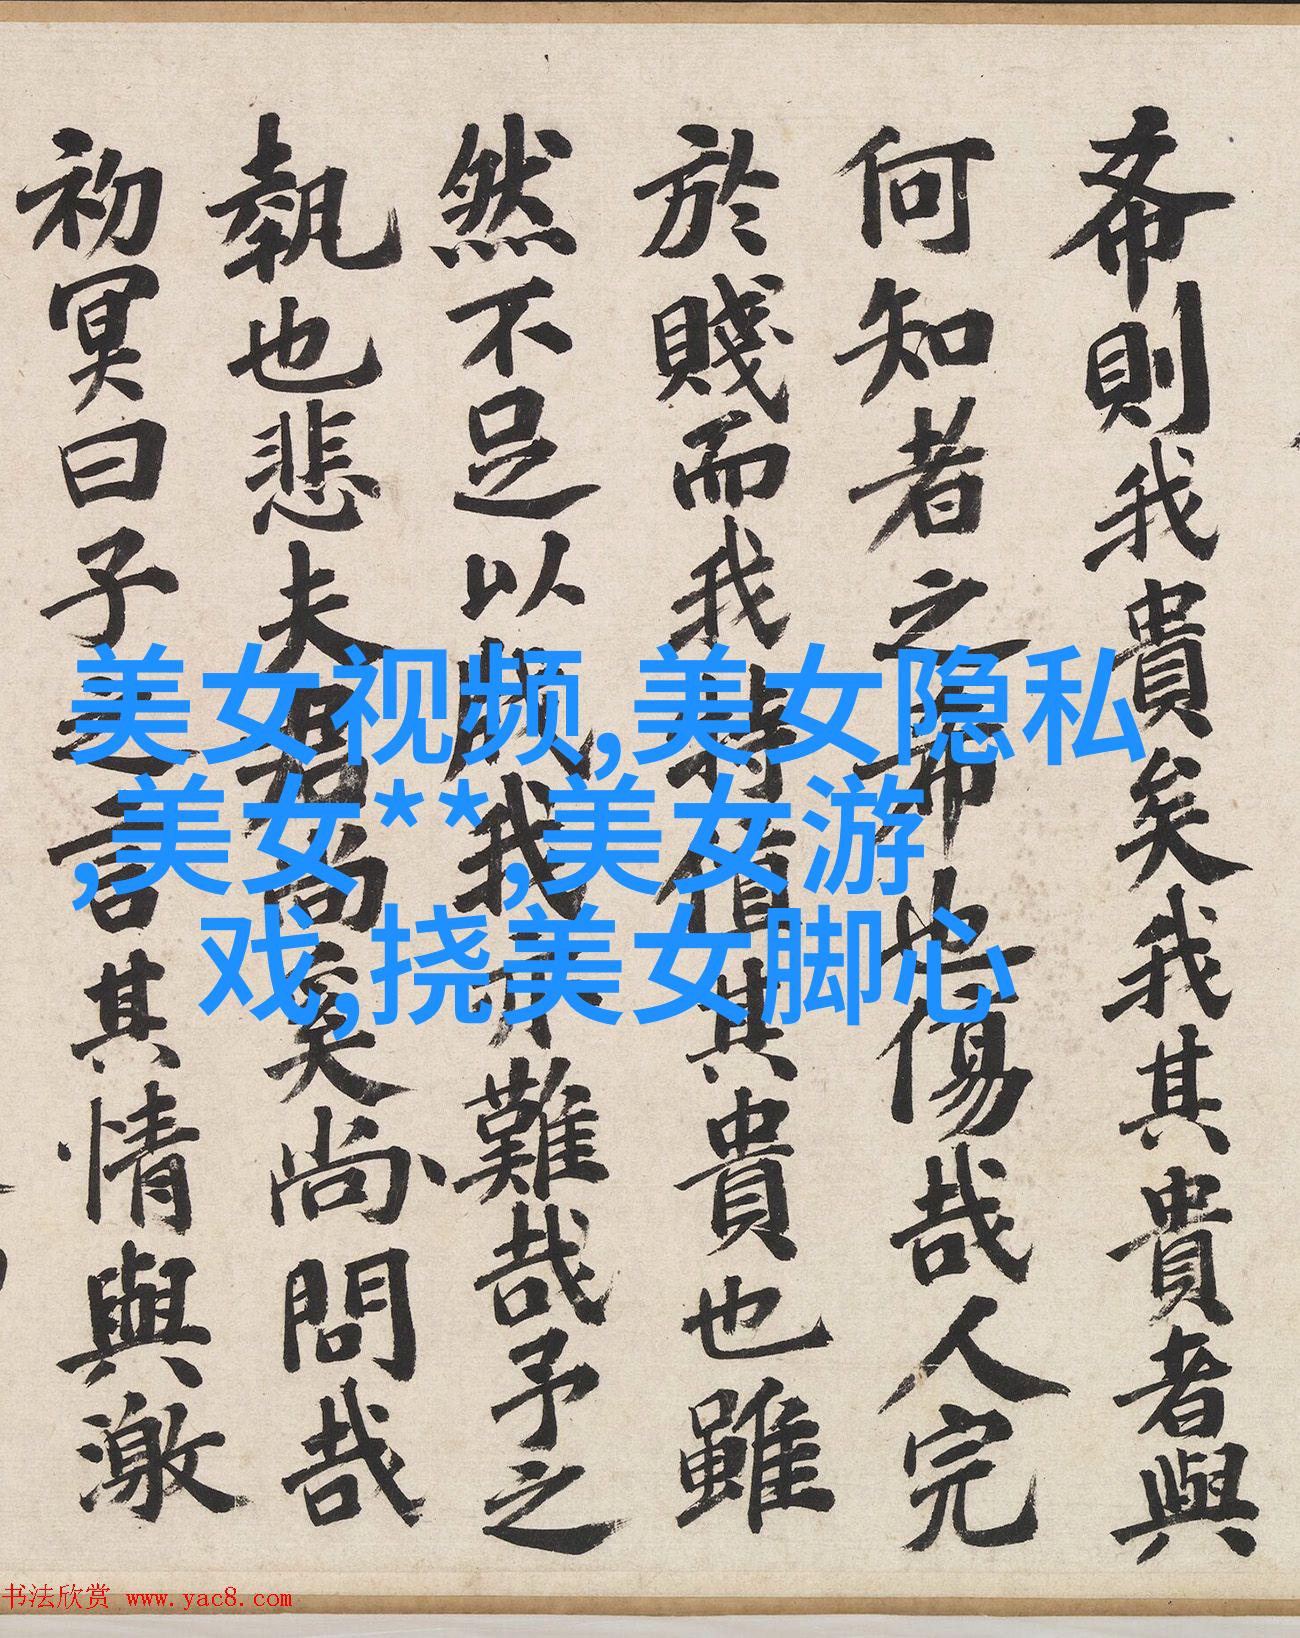 希則我貴矣我其貴者與
何知者之希也傷哉人完
於賤而我特值其貴也雖
然不足以成我 難哉予之
執也悲夫 尚矣尚問哉
初冥曰子之言其情與激
美女视频,美女隐私
,美女**,美女游
戏,挠美女脚心
书法欣赏 www.yac8.com